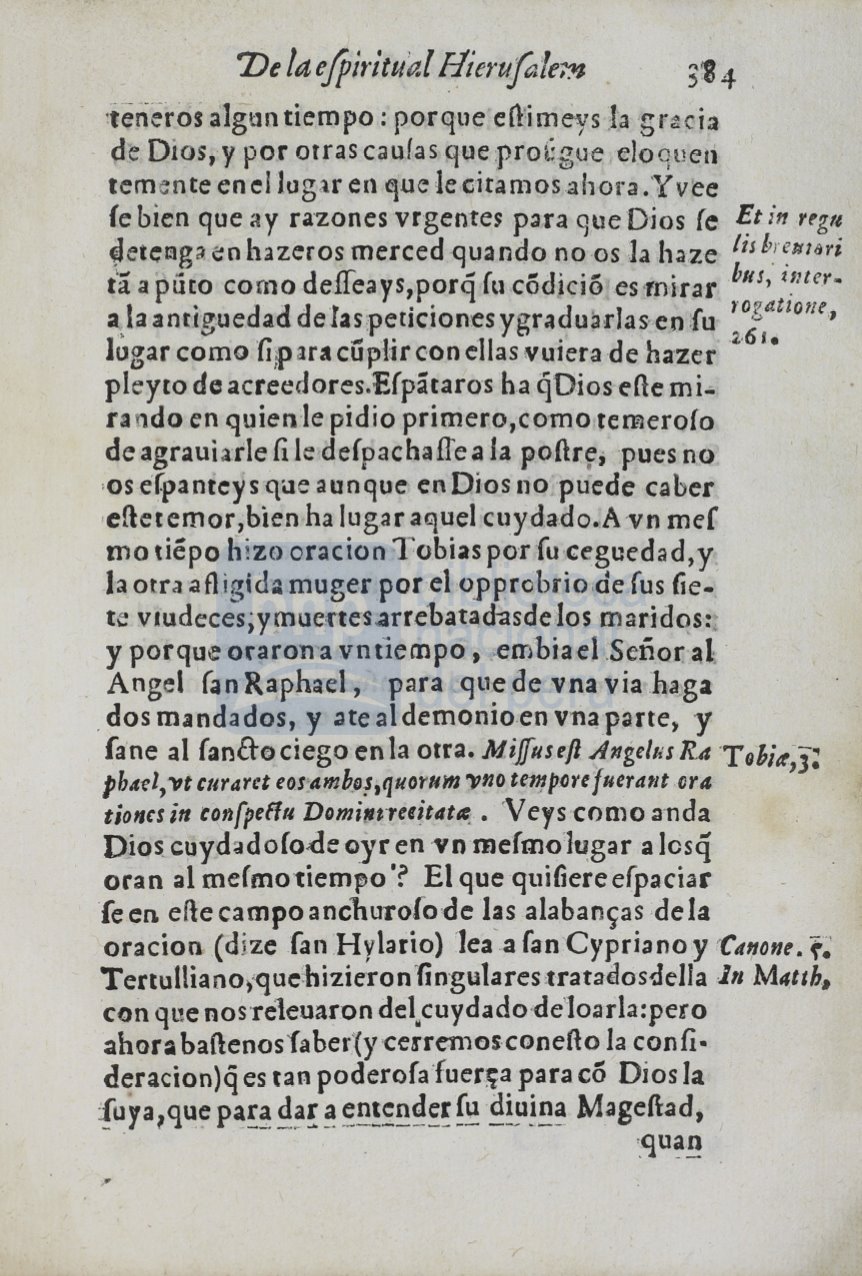 De la eſpiritual Hieruſalem 384
teneros algun tiempo: porque eſtimeys la gracia
de Dios, y por otras cauſas que proſigue eloquen
temente en el lugar en que le citamos ahora. Y vee
ſe bien que ay razones vrgentes para que Dios ſe
detenga en hazeros merced quando no os la haze
tã a pũto como deſſeays, porq̃ ſu cõdiciõ es mirar
a la antiguedad de las peticiones y graduarlas en ſu
lugar como ſi para cũplir con ellas vuiera de hazer
pleyto de acreedores. Eſpãtaros ha q̃ Dios eſte mi-
rando en quien le pidio primero, como temeroſo
de agrauiarle ſi le deſpachaſſe a la poſtre, pues no
os eſpanteys que aunque en Dios no puede caber
eſte temor, bien ha lugar aquel cuydado. A vn meſ
mo tiẽpo hizo oracion Tobias por ſu ceguedad, y
la otra afligida muger por el opprobrio de ſus ſie-
te viudeces, y muertes arrebatadas de los maridos:
y porque oraron a vn tiempo, embia el Señor al
Angel ſan Raphael, para que de vna via haga
dos mandados, y ate al demonio en vna parte, y
ſane al ſancto ciego en la otra. Miſſus eſt Angelus Ra
phael, vt curaret eos ambos, quorum vno tempore fuerant ora
tiones in conſpectu Domini recitatæ. Veys como anda
Dios cuydadoſo de oyr en vn meſmo lugar a los q̃
oran al meſmo tiempo? El que quiſiere eſpaciar
ſe en eſte campo anchuroſo de las alabanças de la
oracion (dize ſan Hylario) lea a ſan Cypriano y
Tertulliano, que hizieron ſingulares tratados della
con que nos releuaron del cuydado de loarla: pero
ahora baſtenos ſaber (y cerremos con eſto la conſi-
deracion) q̃ es tan poderoſa fuerça para cõ Dios la
ſuya, que para dar a entender ſu diuina Mageſtad,
quan
Et in regu
lis breuiori
bus, inter-
rogatione,
261.
Tobiæ, 3.
Canone. 5.
In Matth,